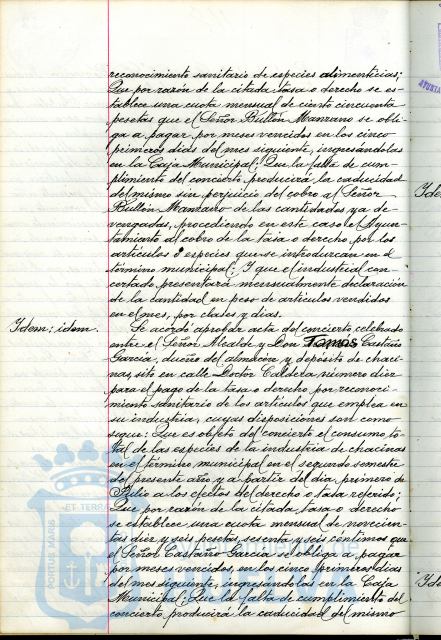 reconocimiento sanitario de especies alimenticias;
Que por razón de la citada tasa o derecho se es-
tablece una cuota mensual de ciento cincuenta
pesetas que el Señor Bullón Manzano se obli-
ga a pagar por meses vencidos en los cinco
primeros dias del mes siguiente, ingresándolas
en la Caja Municipal; Que la falta de cum-
plimiento del concierto producirá la caducidad
del mismo sin perjuicio del cobro al Señor
Bullón Manzano de las cantidades ya de-
vengadas, procediendo en este caso el Ayun-
tamiento al cobro de la tasa o derecho por los
artículos o especies que se introduzcan en el
término municipal; Y que el industrial con-
certado presentará mensualmente declaración
de la cantidad en peso de artículos vendidos
en el mes, por clases y dias.
Idem; idem.
Se acordó aprobar acta del concierto celebrado
entre el Señor Alcalde y Don Tomás Castaño
García, dueño del almacén y depósito de chaci-
nas, sito en calle Doctor Caldera, número diez
para el pago de la tasa o derecho por reconoci-
miento sanitario de los artículos que emplea en
su industria, cuyas disposiciones son como
sigue: Que es objeto del concierto el consumo to-
tal de las especies de la industria de chacinas
en el término municipal en el segundo semestre
del presente año y a partir del dia primero de
Julio a los efectos del derecho o tasa referido;
Que por razón de la citada tasa o derecho
se establece una cuota mensual de novecien-
tas diez y seis pesetas, sesenta y seis céntimos que
el Señor Castaño García se obliga a pagar
por meses vencidos, en los cinco primeros dias
del mes siguiente, ingresándolas en la Caja
Municipal; Que la falta de cumplimiento del
concierto producirá la caducidad del mismo
ET TERRA
PORTUS MARIS